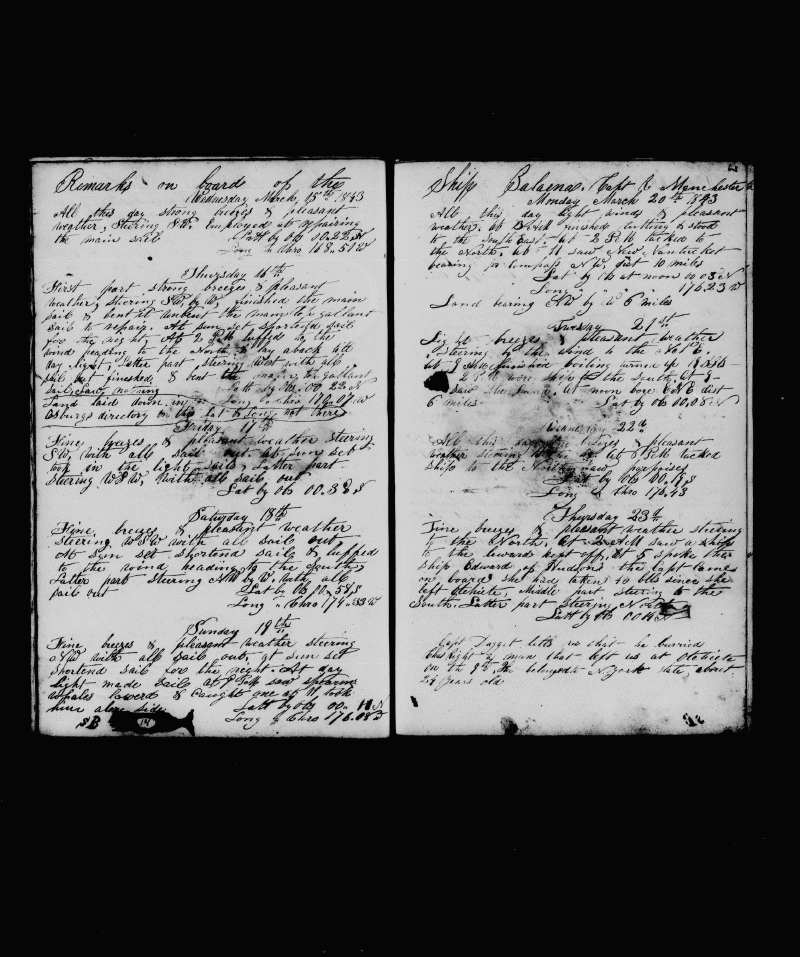 Remarks on board of the
Wednesday March, 15th 1843
All this day strong breezes & pleasant
weather, Steering SW. Employed at repairing
the main sail
Latt by Ob 00..22 S
Long by Chro 168..51 W
Thursday 16th
First part strong breezes & pleasant
weather, steering SW by W, finished the main
sail & bent it unbent the main top gallant
sail to repair. At sun set shortend sail
for the night, At 2 luffed to the
wind heading to the North by aback till
day light, Latter part steering West with all
sail out finished & bent the main, top gallant
sail, saw nothing Latt by Ob. 00 22 S
Land laid down in Long by Chro W
directory in this Lat & Long not there
Friday 17th
Fine breezes & pleasant weather steering
SW, with all sail out, at sun set
took in the light sails, Latter part
steering WSW, With all sail out
Lat by Ob 00.38 S
Saturday 18th
Fine breezes & pleasant weather
Steering WSW with all sail out
At sun set shortend sail & luffed
to the wind heading to the South
Latter part steering NW by W. With all
sail out Lat by Ob 00..58 S
Long by Chro 174..33 W
Sunday 19th
Fine breezes & pleasant weather steering
NW with all sail out, at sun set
shortend sail for the night. At day
light made sail at saw sperm
whales lowerd & Caught one at 11 took
him along side Latt by Ob 00.. 11 S
SB Long by Chro 176.08 W
Ship Balaena. Capt Manchester
Monday March 20th 1843
All this day light winds & pleasant
weather, at finished cutting & stood
to the South East. At 2 tacked to
the North, At 11 saw New Nantucket
bearing per compass dist 10 miles
Lat by Ob at noon 00.03 N
Long 176.23 W
Land bearing NW by W 6 miles
Tuesday 21st
Light breezes & pleasant weather
Steering by the wind to the
at 9 finished boiling turned up
wore ship to the South, at 5
saw the at noon bore ENE dist
6 miles Lat by Ob 00.08 N
Wednesday 22nd
All this day breezes & pleasant
weather steering to the at tacked
ship to the North saw porpoises
Latt by Ob 00.17 S
Long by Chro 176.43
Thursday 23d
Fine breezes & pleasant weather steering
to the North, At 2 AM saw a ship
to the leward kept off, At 5 spoke the
Ship Edward of Hudson the Capt came
on board she had taken 40 bbls since she
left Otehite, Middle part steering to the
South. Latter part Steering North
Latt by Ob 00
Capt Dagget tells us that he burried
the man that left us at Otehite
on the 9th he belonged to N York state, about
24 years old